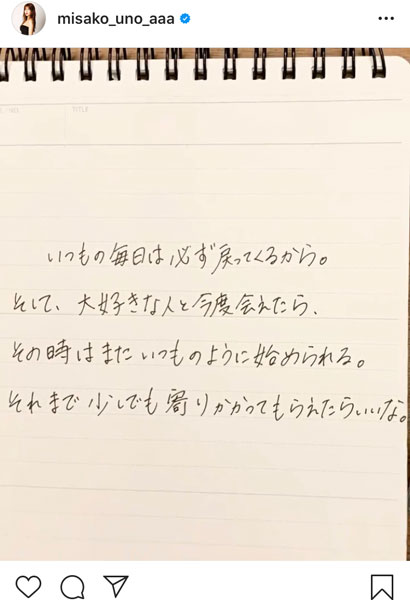 misako_uno_aaa
TITLE
いつもの毎日は必ず戻ってくるから。
そして、大好きな人と今度会えたら、
その時はまたいつものように始められる。
それまで少しでも寄りかかってもらえたらいいな。